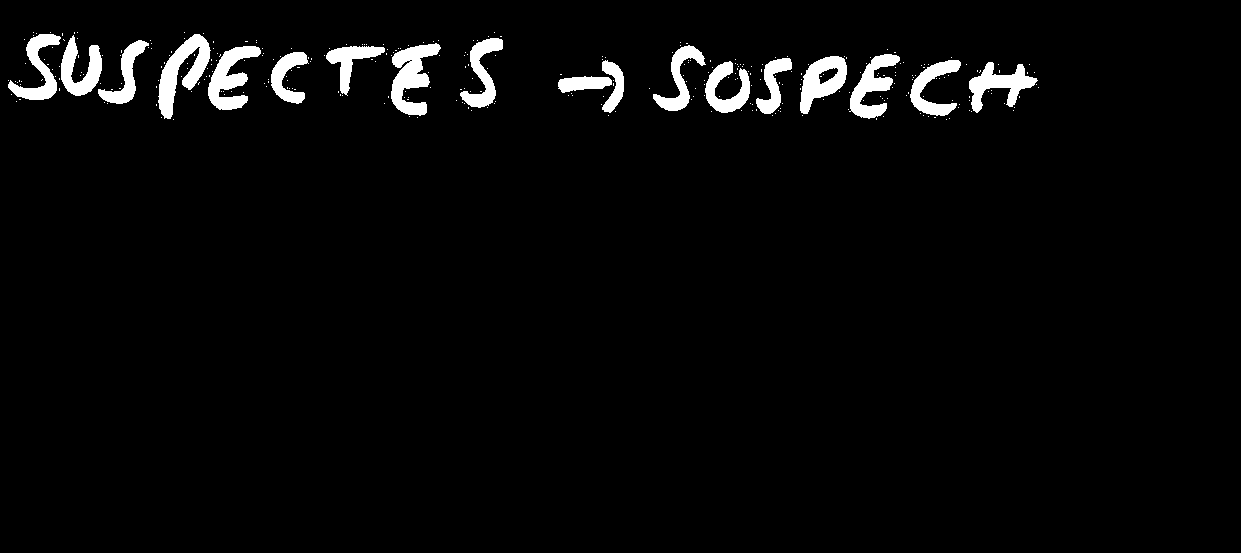 SUSPECTES → SOSPECH